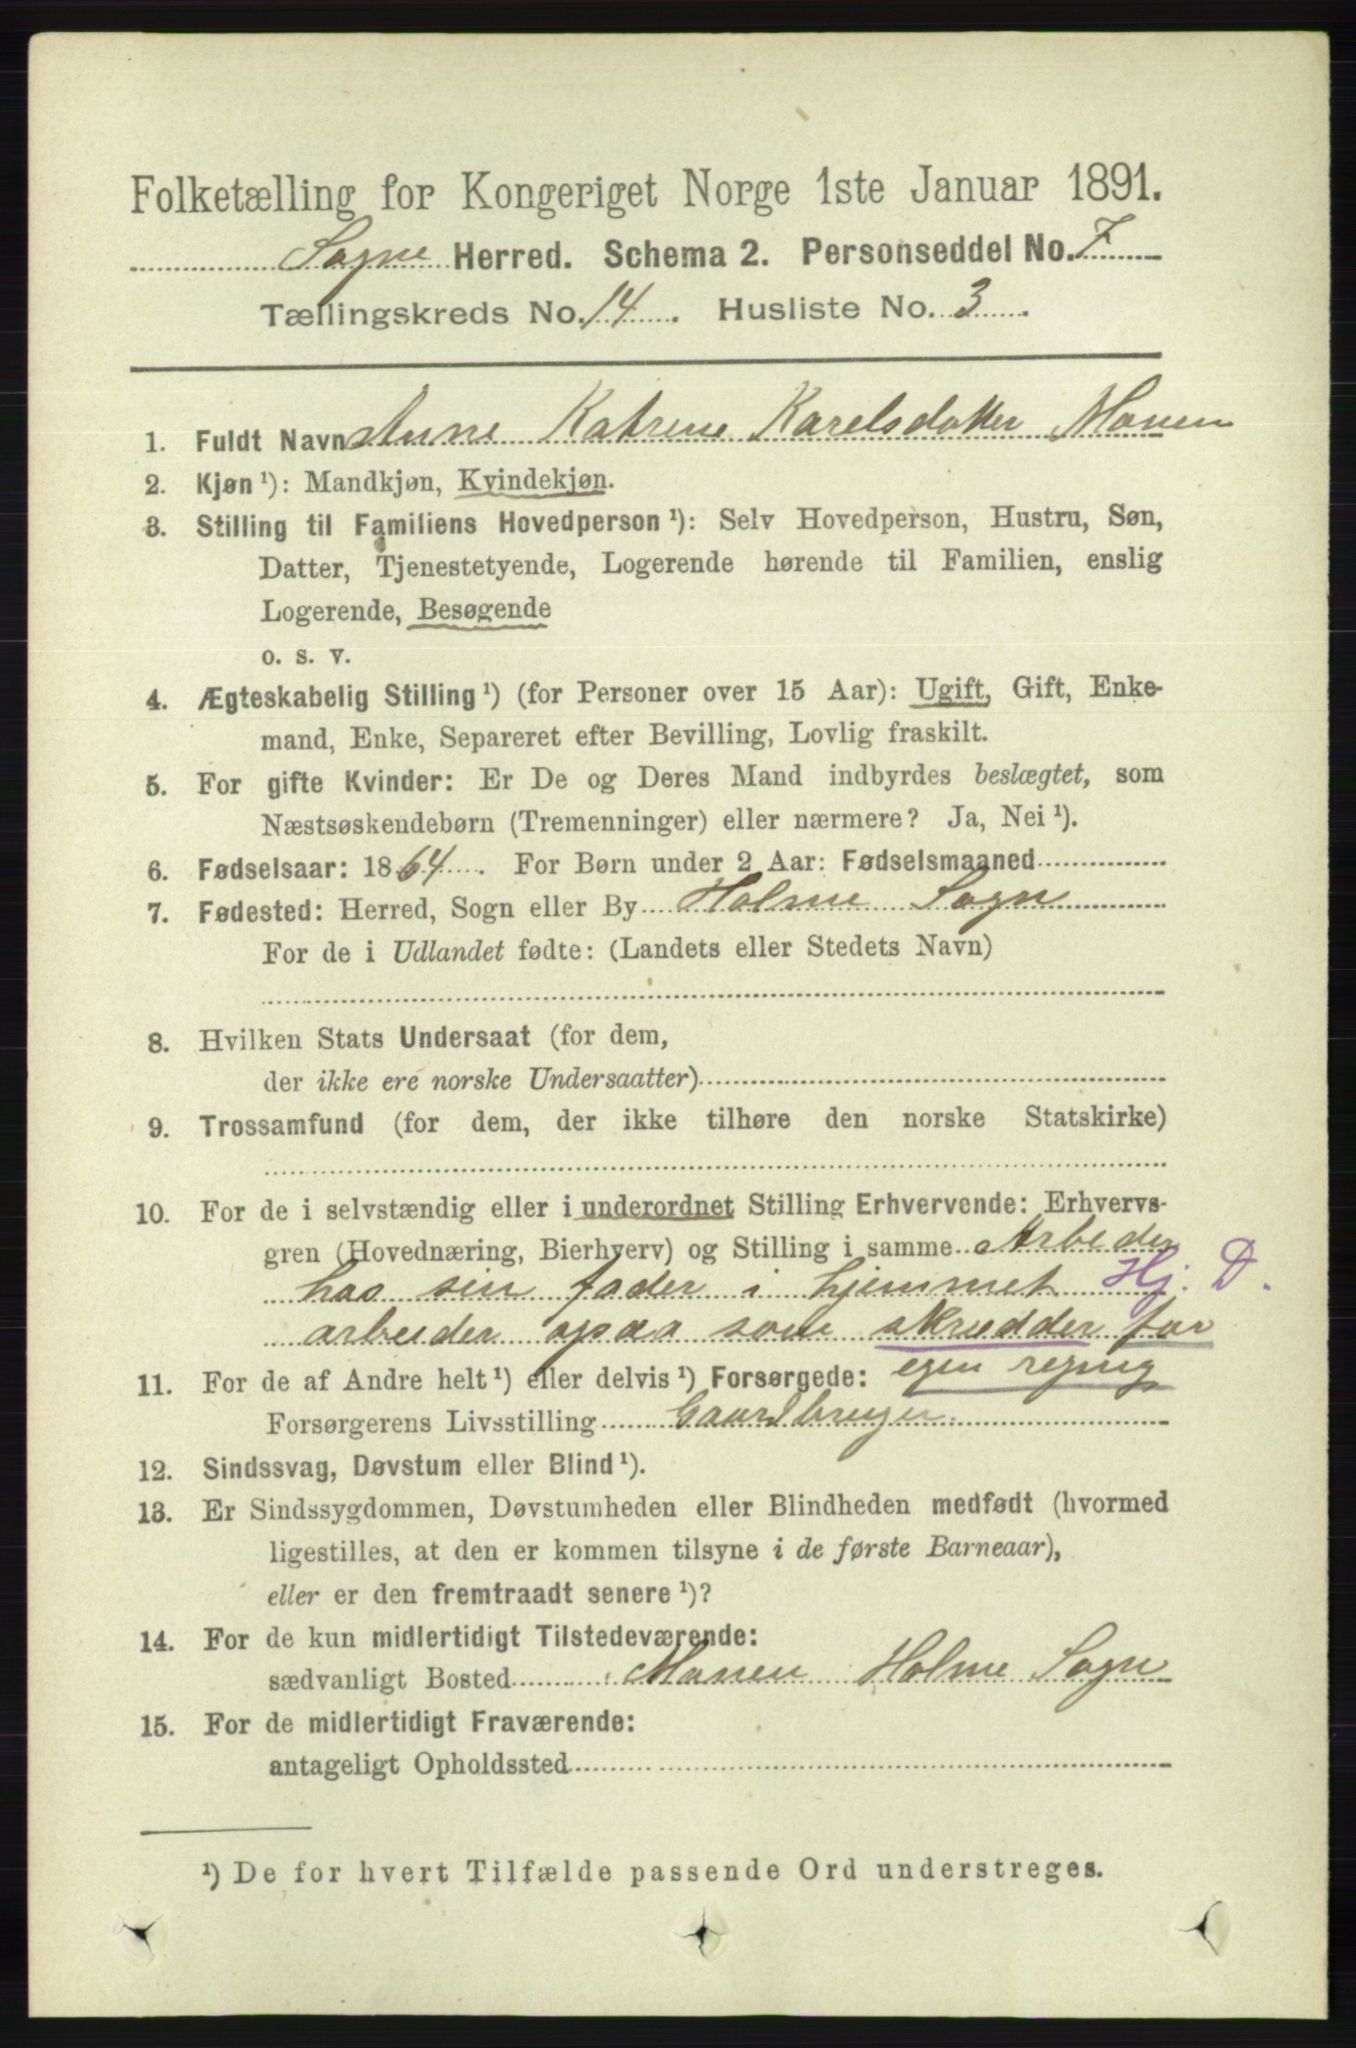 Folketælling for Kongeriget Norge 1ste Januar 1891.
Sogne Herred. Schema 2. Personseddel No. 7
Tællingskreds No. 14. Husliste No. 3.
1. Fuldt Navn Anne Katrene Karelsdatter Monen
2. Kjøn ¹): Mandkjøn, Kvindekjøn.
3. Stilling til Familiens Hovedperson ¹): Selv Hovedperson, Hustru, Søn,
Datter, Tjenestetyende, Logerende hørende til Familien, enslig
Logerende, Besøgende
o. s. v.
4. Ægteskabelig Stilling ¹) (for Personer over 15 Aar): Ugift, Gift, Enke-
mand, Enke, Separeret efter Bevilling, Lovlig fraskilt.
5. For gifte Kvinder: Er De og Deres Mand indbyrdes beslægtet, som
Næstsøskendebørn (Tremenninger) eller nærmere? Ja, Nei ¹).
6. Fødselsaar: 1864. For Børn under 2 Aar: Fødselsmaaned
7. Fødested: Herred, Sogn eller By Holme Sogn
For de i Udlandet fødte: (Landets eller Stedets Navn)
8. Hvilken Stats Undersaat (for dem,
der ikke ere norske Undersaatter)
9. Trossamfund (for dem, der ikke tilhøre den norske Statskirke)
10. For de i selvstændig eller i underordnet Stilling Erhvervende: Erhvervs-
gren (Hovednæring, Bierhverv) og Stilling i samme Arbeder
hos sin fader i hjemmet Hj. D.
arbeider ogsaa som skrædder for
egen regnig
11. For de af Andre helt ¹) eller delvis ¹) Forsørgede:
Forsørgerens Livsstilling Gaardbruger
12. Sindssvag, Døvstum eller Blind ¹).
13. Er Sindssygdommen, Døvstumheden eller Blindheden medfødt (hvormed
ligestilles, at den er kommen tilsyne i de første Barneaar),
eller er den fremtraadt senere ¹)?
14. For de kun midlertidigt Tilstedeværende:
sædvanligt Bosted Monen Holme Sogn
15. For de midlertidigt Fraværende:
antageligt Opholdssted
¹) De for hvert Tilfælde passende Ord understreges.